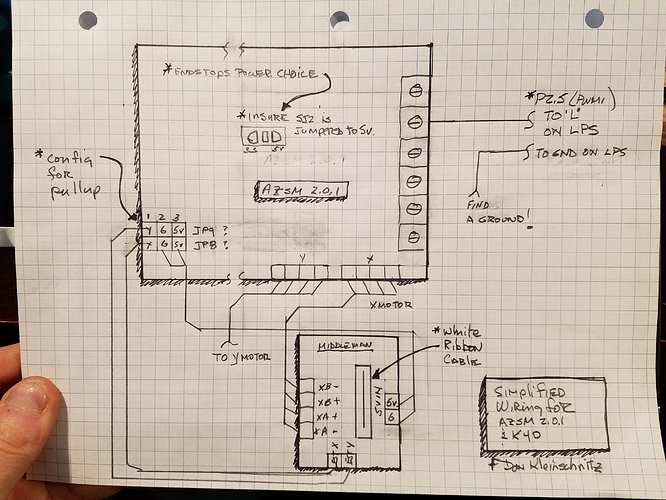 * ENDSTOPS POWER CHOICE
* INSURE SJ2 is
JUMPERED TO 5v.
3.3 5v
AZSM 2.0.1
* P2.5 (PWM1)
TO 'L'
ON LPS
TO GND ON LPS
FIND
A GROUND!
* config
FOR
pullup
1 2 3
Y G 5v JP9 ?
X G 5v JP8 ?
Y X
XMOTOR
TO Y MOTOR
MIDDLEMAN
* White
Ribbon
Cable
XB -
XB +
XA +
XA -
5VIN
5v
G
X Y
SIMPLIFIED
Wiring for
AZSM 2.0.1
& K40
+ Don Kleinschnitz